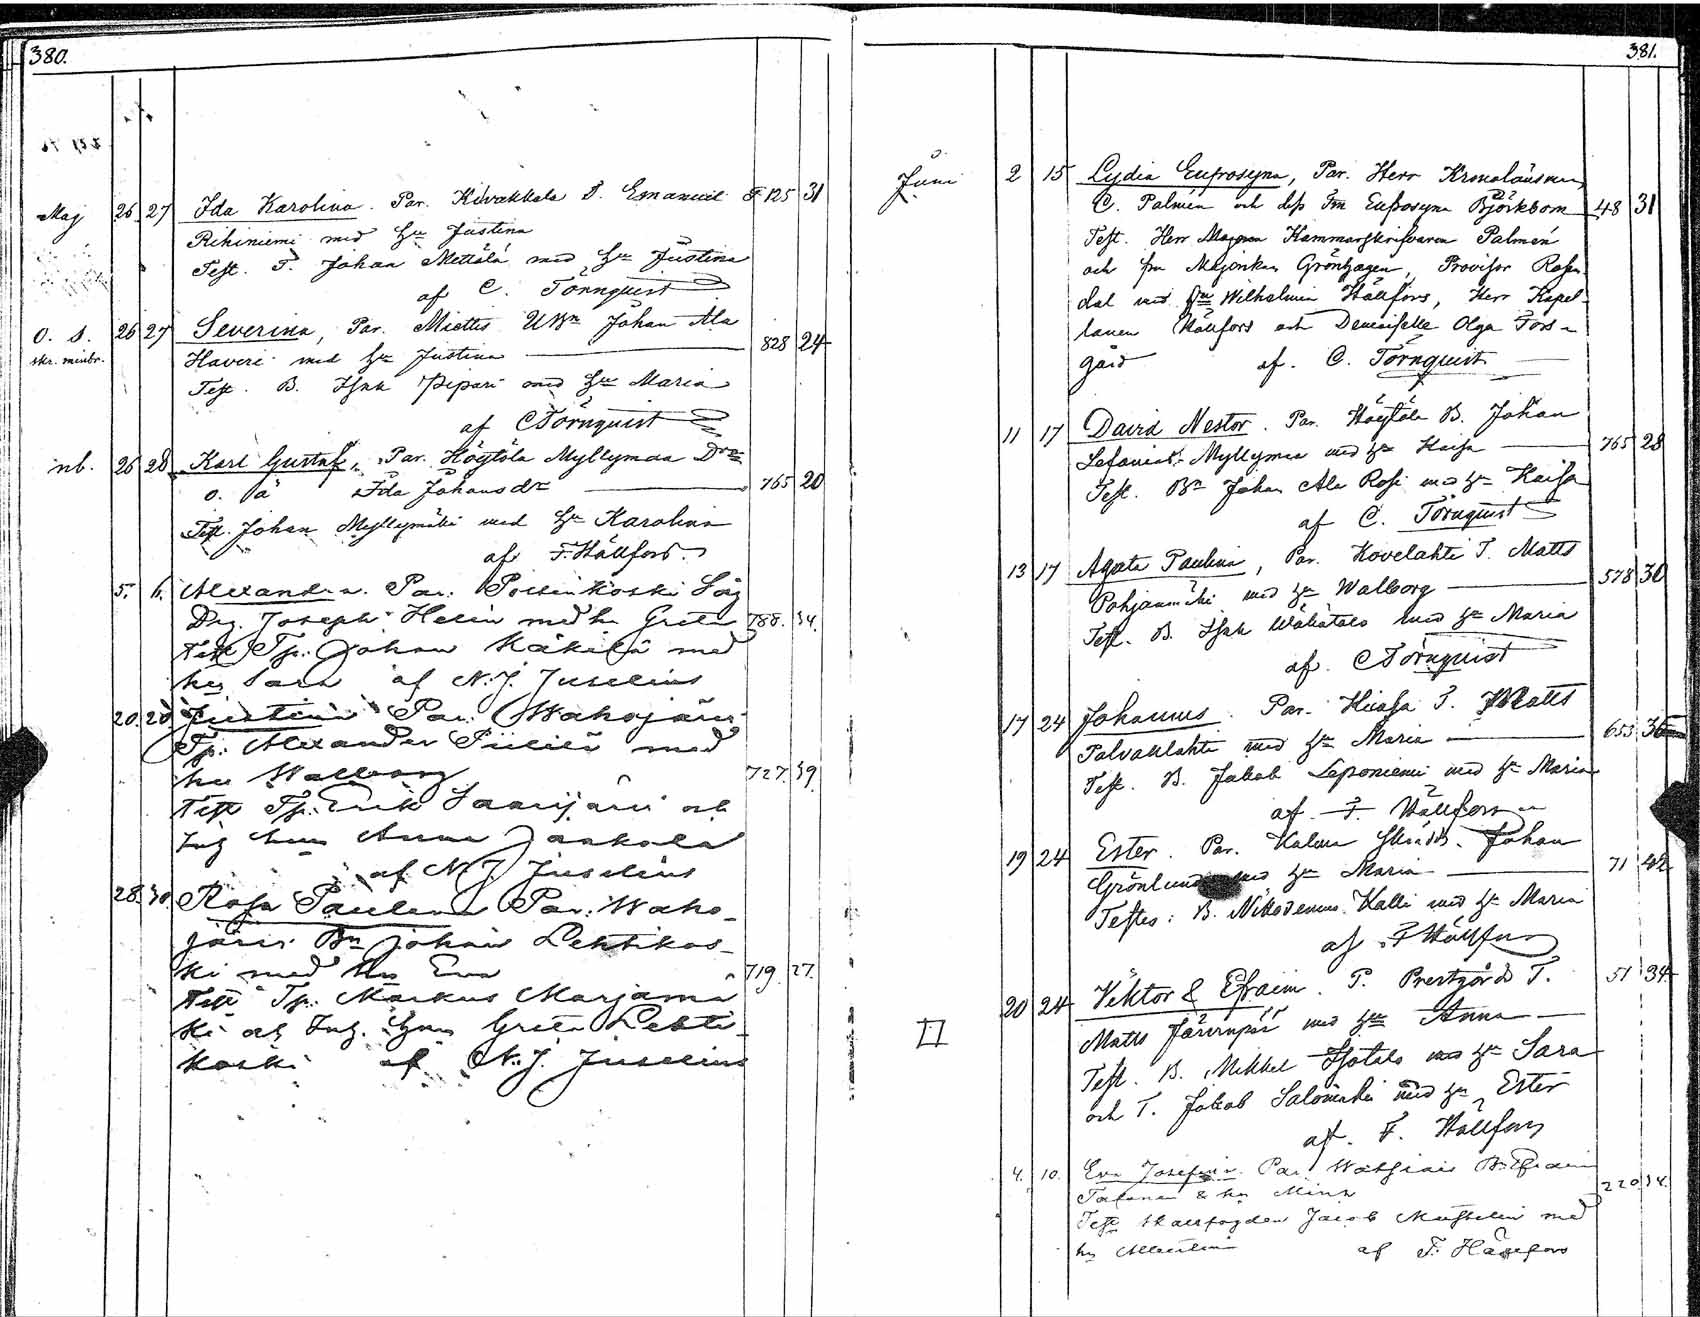 380.
Maj 26 27 Ida Karolina. Par. Kilvakkala T. Emanuel F 125 31
Rihiniemi med Hu Justina
Test. T. Johan Mettälä med Hu Justina
af C. Törnquist
o. s. 26 27 Severina, Par. Miettis Johan Ala
skr. minbr. Haveri med Hu Justina 828 24
Test. B. Isak Pipari med Hu Maria
af C Törnquist
nb. 26 28 Karl Gustaf, Par. Höytölä Myllymaa
o. ä Ida Johansdr 765 20
Test. Johan Myllymäki med Hu Karolina
af F. Hällfors.
5. 6. Alexandra. Par:
Joseph Helin med hu Greta 788. 34.
Test Tp: Johan Käkelä med
hu Sara af N. J. Juselius
20. 20 Justina Par. Wahojärvi
Tp: Alexander med
hu Walborg 727. 39.
Test Tp: Erik Saarijärvi och
Anna Jaskola
af N. J. Juselius
28. 30. Rosa Paulina Par: Waho-
järvi Bn Johan Lehtikos-
ki med hu Eva 719. 27.
Test Tp: Markus Marjamä
ki och Greta Lehti
koski af N. J. Juselius
381.
Juni 2 15 Lydia Eufrosyna, Par. Herr Kronolänsman
C. Palmén och dess Fru Eufrosyna Björkbom 48 31
Test. Herr Kammarskrifvaren Palmén
och fru Grönhagen, Provisor Rosen-
dal med Wilhelmina Hällfors, Herr Kapel-
lanen Hällfors och Demoiselle Olga Fors-
gård af. C. Törnquist
11 17 David Nestor. Par. Höytölä B. Johan
Myllymaa med Hu Kaisa 765 28
Test. Bn Johan Ala Rosi med Hu Kaisa
af C. Törnquist
13 17 Agata Paulina, Par. Kovelahti T. Matts
Pohjanmäki med Hu Walborg 578 30
Test. B. Isak med Hu Maria
af. C Törnquist
17 24 Johannes. Par. T. Matts
med Hu Maria 653 36
Test. B. Jakob Leponiemi med Hu Maria
af F Hällfors
19 24 Ester. Par. Kalma Johan
Grönlund med Hu Maria 71 42
Testes: B. Nikodemus Kalli med Hu Maria
af F Hällfors
20 24 Viktor & Efraim. P. Prestgård T. 51 34
Matts Järvenpää med Hu Anna
Test. B. Mikkel Isotalo med Hu Sara
och T. Jakob Salomäki med Hu Ester
af. F. Hällfors
4. 10. Eva Josefina. Par Bn Efraim
& hu Mina 220 34.
Test Jacob med
hu af F. Hällfors